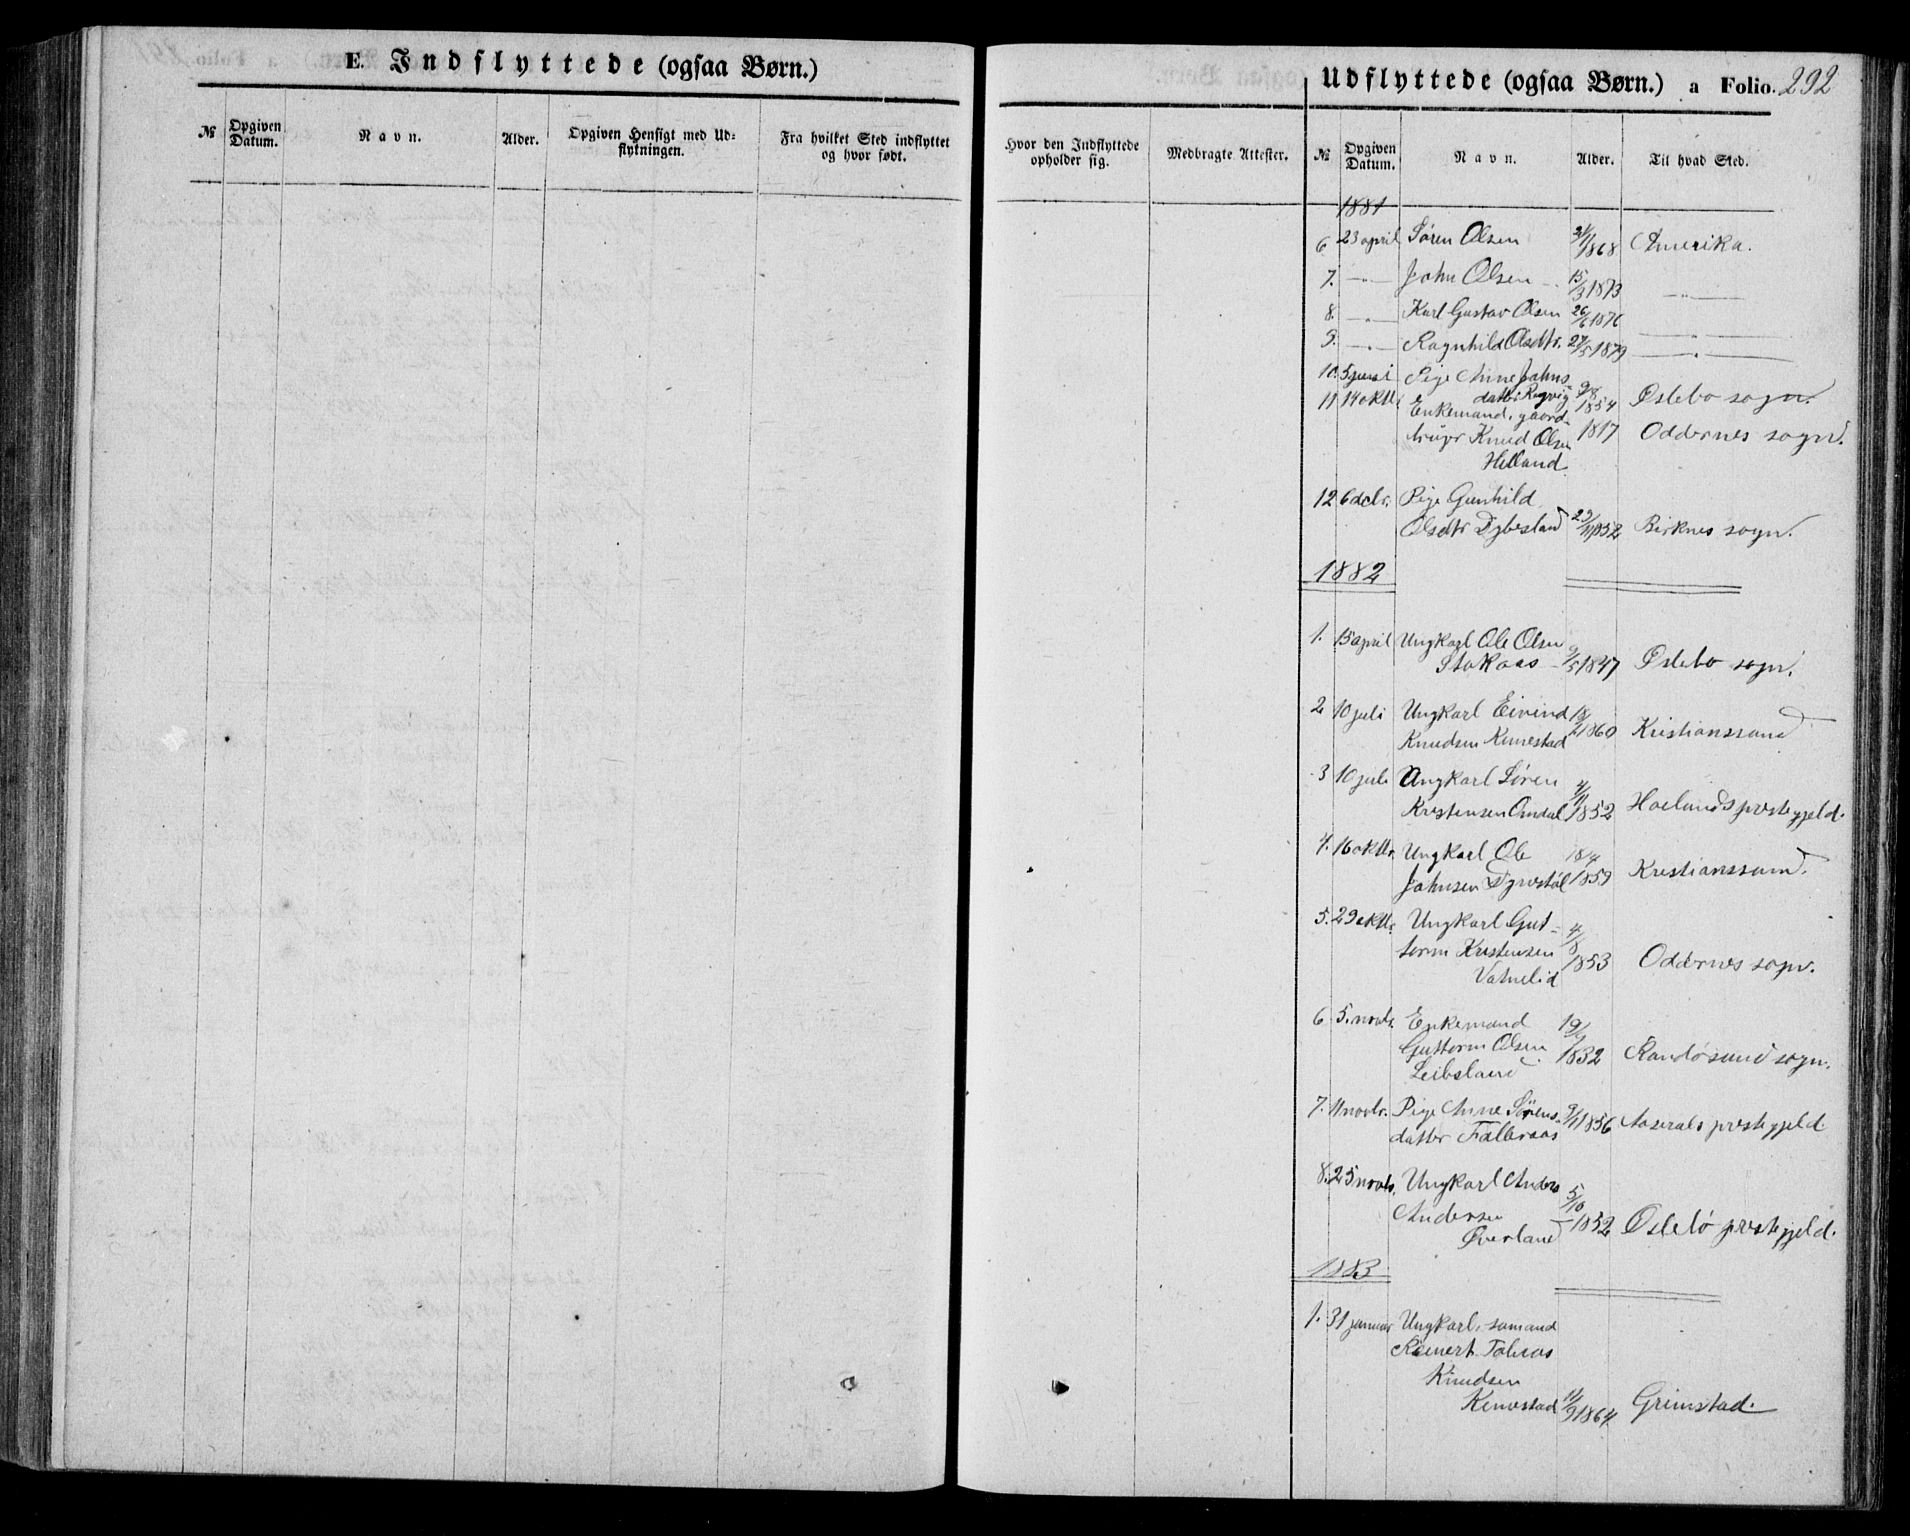 E. Indflyttede (ogsaa Børn.)
№ Opgiven Datum. Navn. Alder. Opgiven Hensigt med Udflytningen. Fra hvilket Sted indflyttet og hvor født.
Hvor den Indflyttede opholder sig. Medbragte Attester.
Udflyttede (ogsaa Børn.) a Folio. 292
№ Opgiven Datum. Navn. Alder. Til hvad Sted.
1881
6 23 april Søren Olsen /1868 Amerika.
7. —"— John Olsen 15/3 1873 —"—
8. —"— Karl Gustav Olsen 26/6 1876 —"—
9. —"— Ragnhild Olsdtr. 27/5 1879 —"—
10. 5 juni Pige Anne Johns-
datter Røyvig 9/8 1854 Øslebo sogn.
11 14 oktb Enkemand, gaard-
bruger Knud Olsen 1817 Oddernes sogn.
Helland
12 6 dcbr. Pige Gunhild
Olsdtr Dybesland 29/11 1852 Birknes sogn.
1882
1. 15 april Ungkarl Ole Olsen
Stokaas 9/5 1847 Øslebo sogn.
2 10 juli Ungkarl Eivind 18/
Knudsen Kenestad 1860 Kristianssand
3 10 juli Ungkarl Søren
Kristensen Omdal 4/11 1852 Holands prestegjeld.
4. 16 oktbr. Ungkarl Ole 18/4
Johnsen Dyrestøl 1859 Kristianssand.
5. 29 oktbr. Ungkarl Gut-
torm Kristensen 4/8 1853 Oddernes sogn.
Vatnelid
6 5. novbr. Enkemand 19/
Guttorm Olsen 1832 Randøsund sogn.
Leibsland
7. 11 novbr. Pige Anne Sørens- 9/11 1856 Aaserals prestegjeld
datter Faleraas
8. 25 novbr. Ungkarl Anders 5/10
Andersen 1832 Øslebø prestegjeld.
Øverland
1883
1. 31 januar Ungkarl, sømand
Reinert Tobias
Knudsen
Kenestad 14/9 1864 Grimstad.